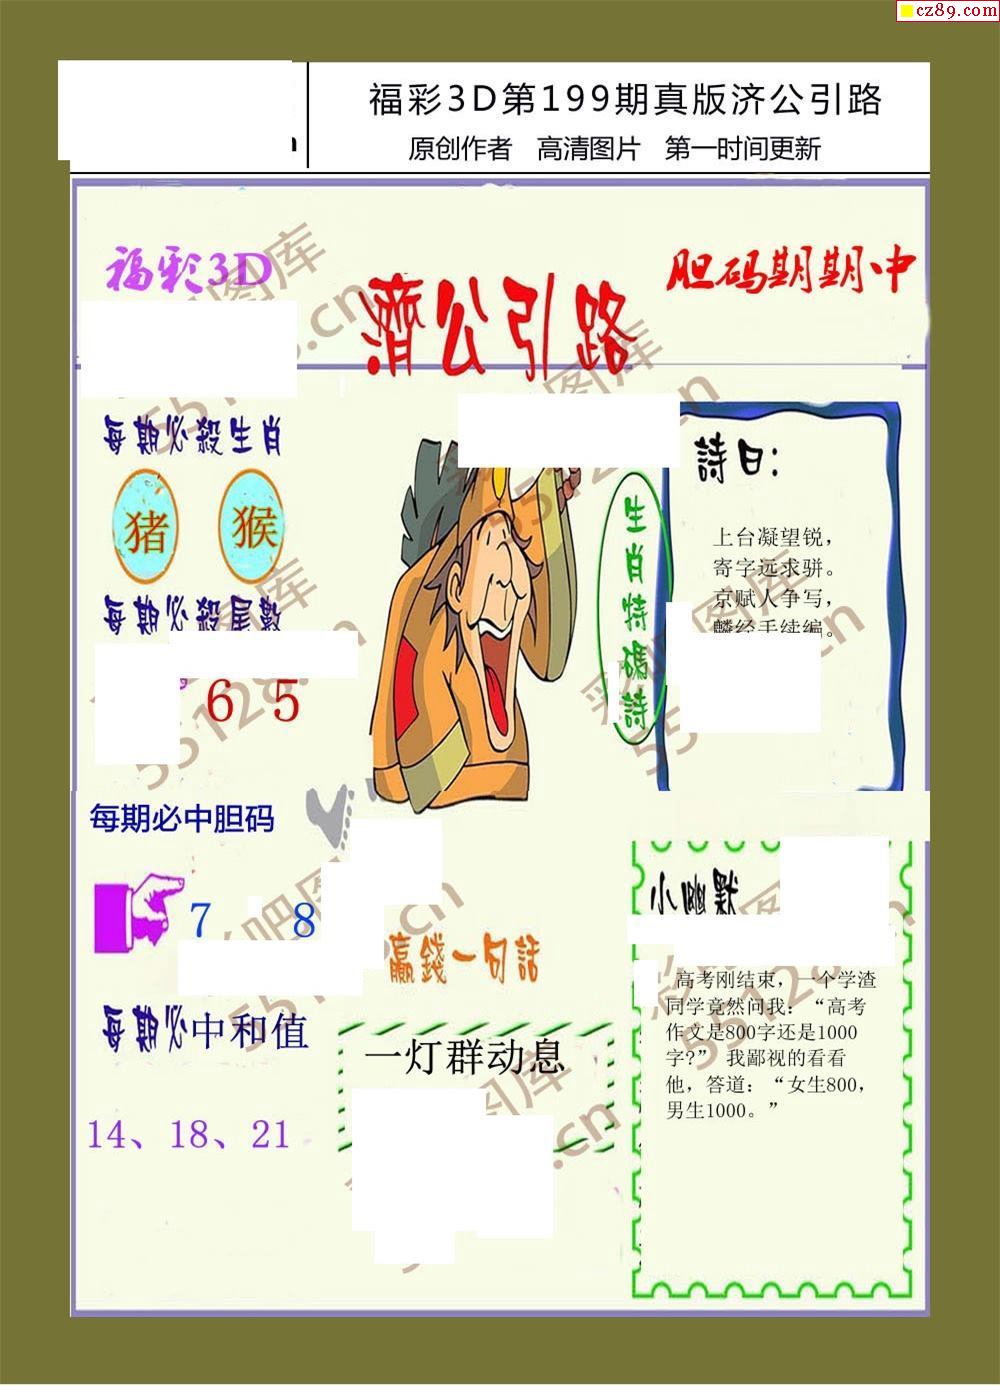 cz89.com
福彩3D第199期真版济公引路
原创作者 高清图片 第一时间更新
福彩3D
濟公引路
胆码期期中
每期必殺生肖
猪 猴
每期必殺尾數
6 5
生肖特碼詩
詩曰:
上台凝望锐，
寄字远求骈。
京赋人争写，
麟经手续编。
每期必中胆码
7 8
每期必中和值
14、18、21
赢錢一句話
一灯群动息
小幽默
高考刚结束，一个学渣
同学竟然问我：“高考
作文是800字还是1000
字?” 我鄙视的看看
他，答道：“女生800，
男生1000。”
彩吧图库
55128.cn